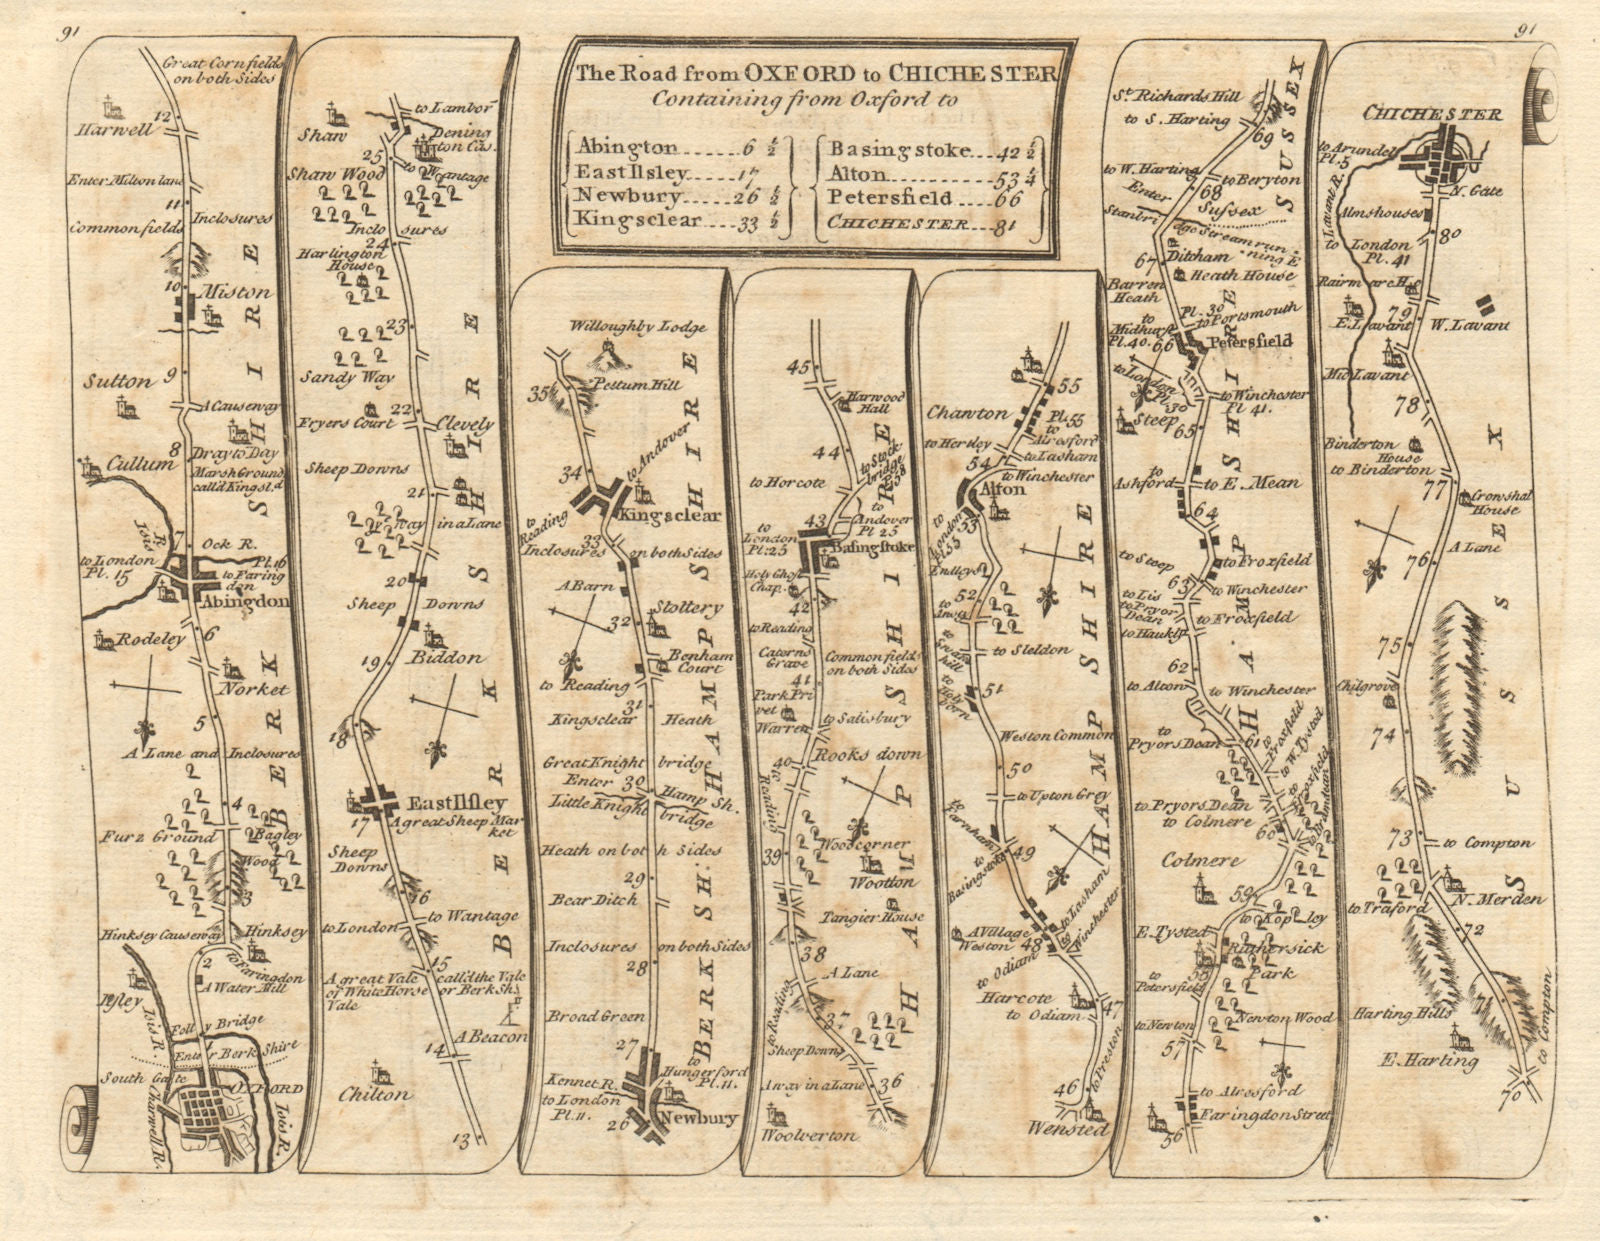 91
91
The Road from OXFORD to CHICHESTER
Containing from Oxford to
Abington 6 ½
East Ilsley 17
Newbury 26 ½
Kingsclear 33 ½
Basingstoke 42 ½
Alton 53 ¼
Petersfield 66
CHICHESTER 81
Great Cornfields
on both Sides
12
Harwell
Enter Milton lane
11
Inclosures
Common fields
10
Miston
Sutton 9
A Causeway
8
Drayto Day
Cullum
Marsh Ground
call'd Kingsl.d
Isis
R.
7
Ock R.
to London
Pl. 15
Pl. 16
to Faring
don
Abingdon
Rodeley
6
Norket
5
A Lane and Inclosures
4
Furz Ground
Bagley
Wood
3
Hinksey Causeway
Hinksey
2
to Faringdon
A Water Mill
Ifley
Isis R.
Folly Bridge
1
Enter Berk Shire
South Gate
OXFORD
Charwell R.
Isis R.
BERK SHIRE
to Lambor
Shaw
Dening
ton Cas.
25
to Wantage
Shaw Wood
Inclosures
24
Harlington
House
23
Sandy Way
22
Fryers Court
Clevely
Sheep Downs
21
in a Lane
20
Sheep Downs
19
Biddon
18
East Ilsley
17
A great Sheep Mar
ket
Sheep
Downs
16
to London
to Wantage
15
A great Vale call'd the Vale
of White Horse or Berk Sh.
Vale
A Beacon
14
Chilton
13
BERK SHIRE
Willoughby Lodge
35
Pestum Hill
34
to Andover
Kingsclear
to
Reading
33
Inclosures on both Sides
A Barn
32
Stoltery
Benham
Court
to Reading
31
Kingsclear Heath
Great Knight bridge
Enter 30 Hamp Sh.
Little Knight bridge
Heath on both Sides
29
Bear Ditch
Inclosures on both Sides
28
Broad Green
27
to
Hungerford
Pl. 11.
Kennet R.
to London
Pl. 11.
26
Newbury
BERK SH. HAMP SHIRE
45
Harwood
Hall
44
to Stock
bridge
to Horcote
43
to
Andover
Pl 25
to
London
Pl. 25
Basingstoke
Holy Ghost
Chap.
42
to Reading
Caterns
Grave
Common fields
on both Sides
41
Park Pri
vet
Warren
to Salisbury
Rooks down
40
to Reading
39
Woodcorner
Wootton
Tangier House
38
A Lane
to Reading
37
Sheep Downs
A way in a Lane
36
Woolverton
HAMP SHIRE
55
Chawton
Pl. 55
to
Alresford
to Hertley
to Lasham
54
to Winchester
Alton
to
London
Pl. 55
53
Endleys
52
to Sleldon
51
Weston Common
50
to Upton Grey
to
Farnham
49
to
Basingstoke
to Lasham
to
Winchester
A Village
Weston
48
to Odiam
Harcote
to Odiam
47
to Preston
46
Wensted
HAMP SHIRE
St. Richards Hill
to S. Harting
69
to W. Harting
to Beryton
68
Enter
Sussex
Stanbri
dge Stream run
ning E
Ditcham
67
Heath House
Barren
Heath
Pl. 30
to Portsmouth
to
Midhurst
Pl. 40.
66
Petersfield
to London
Pl. 30
to Winchester
Pl 41.
Steep
65
to
Ashford
to E. Mean
64
to Steep
to Froxfield
63
to Winchester
to Lis
to Pryor
Dean
to Froxfield
to Haukly
62
to Alton
to Winchester
to
Pryors Dean
61
to
Froxfield
to W. Tysted
to Pryors Dean
to Colmere
60
to
Froxfield
to Bramdean
Colmere
59
to Kopley
E. Tysted
Rothersick
Park
58
to
Petersfield
to Newton
Newton Wood
57
to Alresford
Faringdon Street
56
HAMP SHIRE SUSSEX
CHICHESTER
to Arundel
Pl. 5
N. Gate
Lavant R.
Almshouses
80
to London
Pl. 41
79
E. Lavant
W. Lavant
Mid Lavant
78
Binderton
House
to Binderton
77
Crowshal
House
A Lane
76
75
Chilgrove
74
73
to Compton
N. Merden
to Traford
72
71
Harting Hills
E. Harting
to Compton
70
SUSSEX